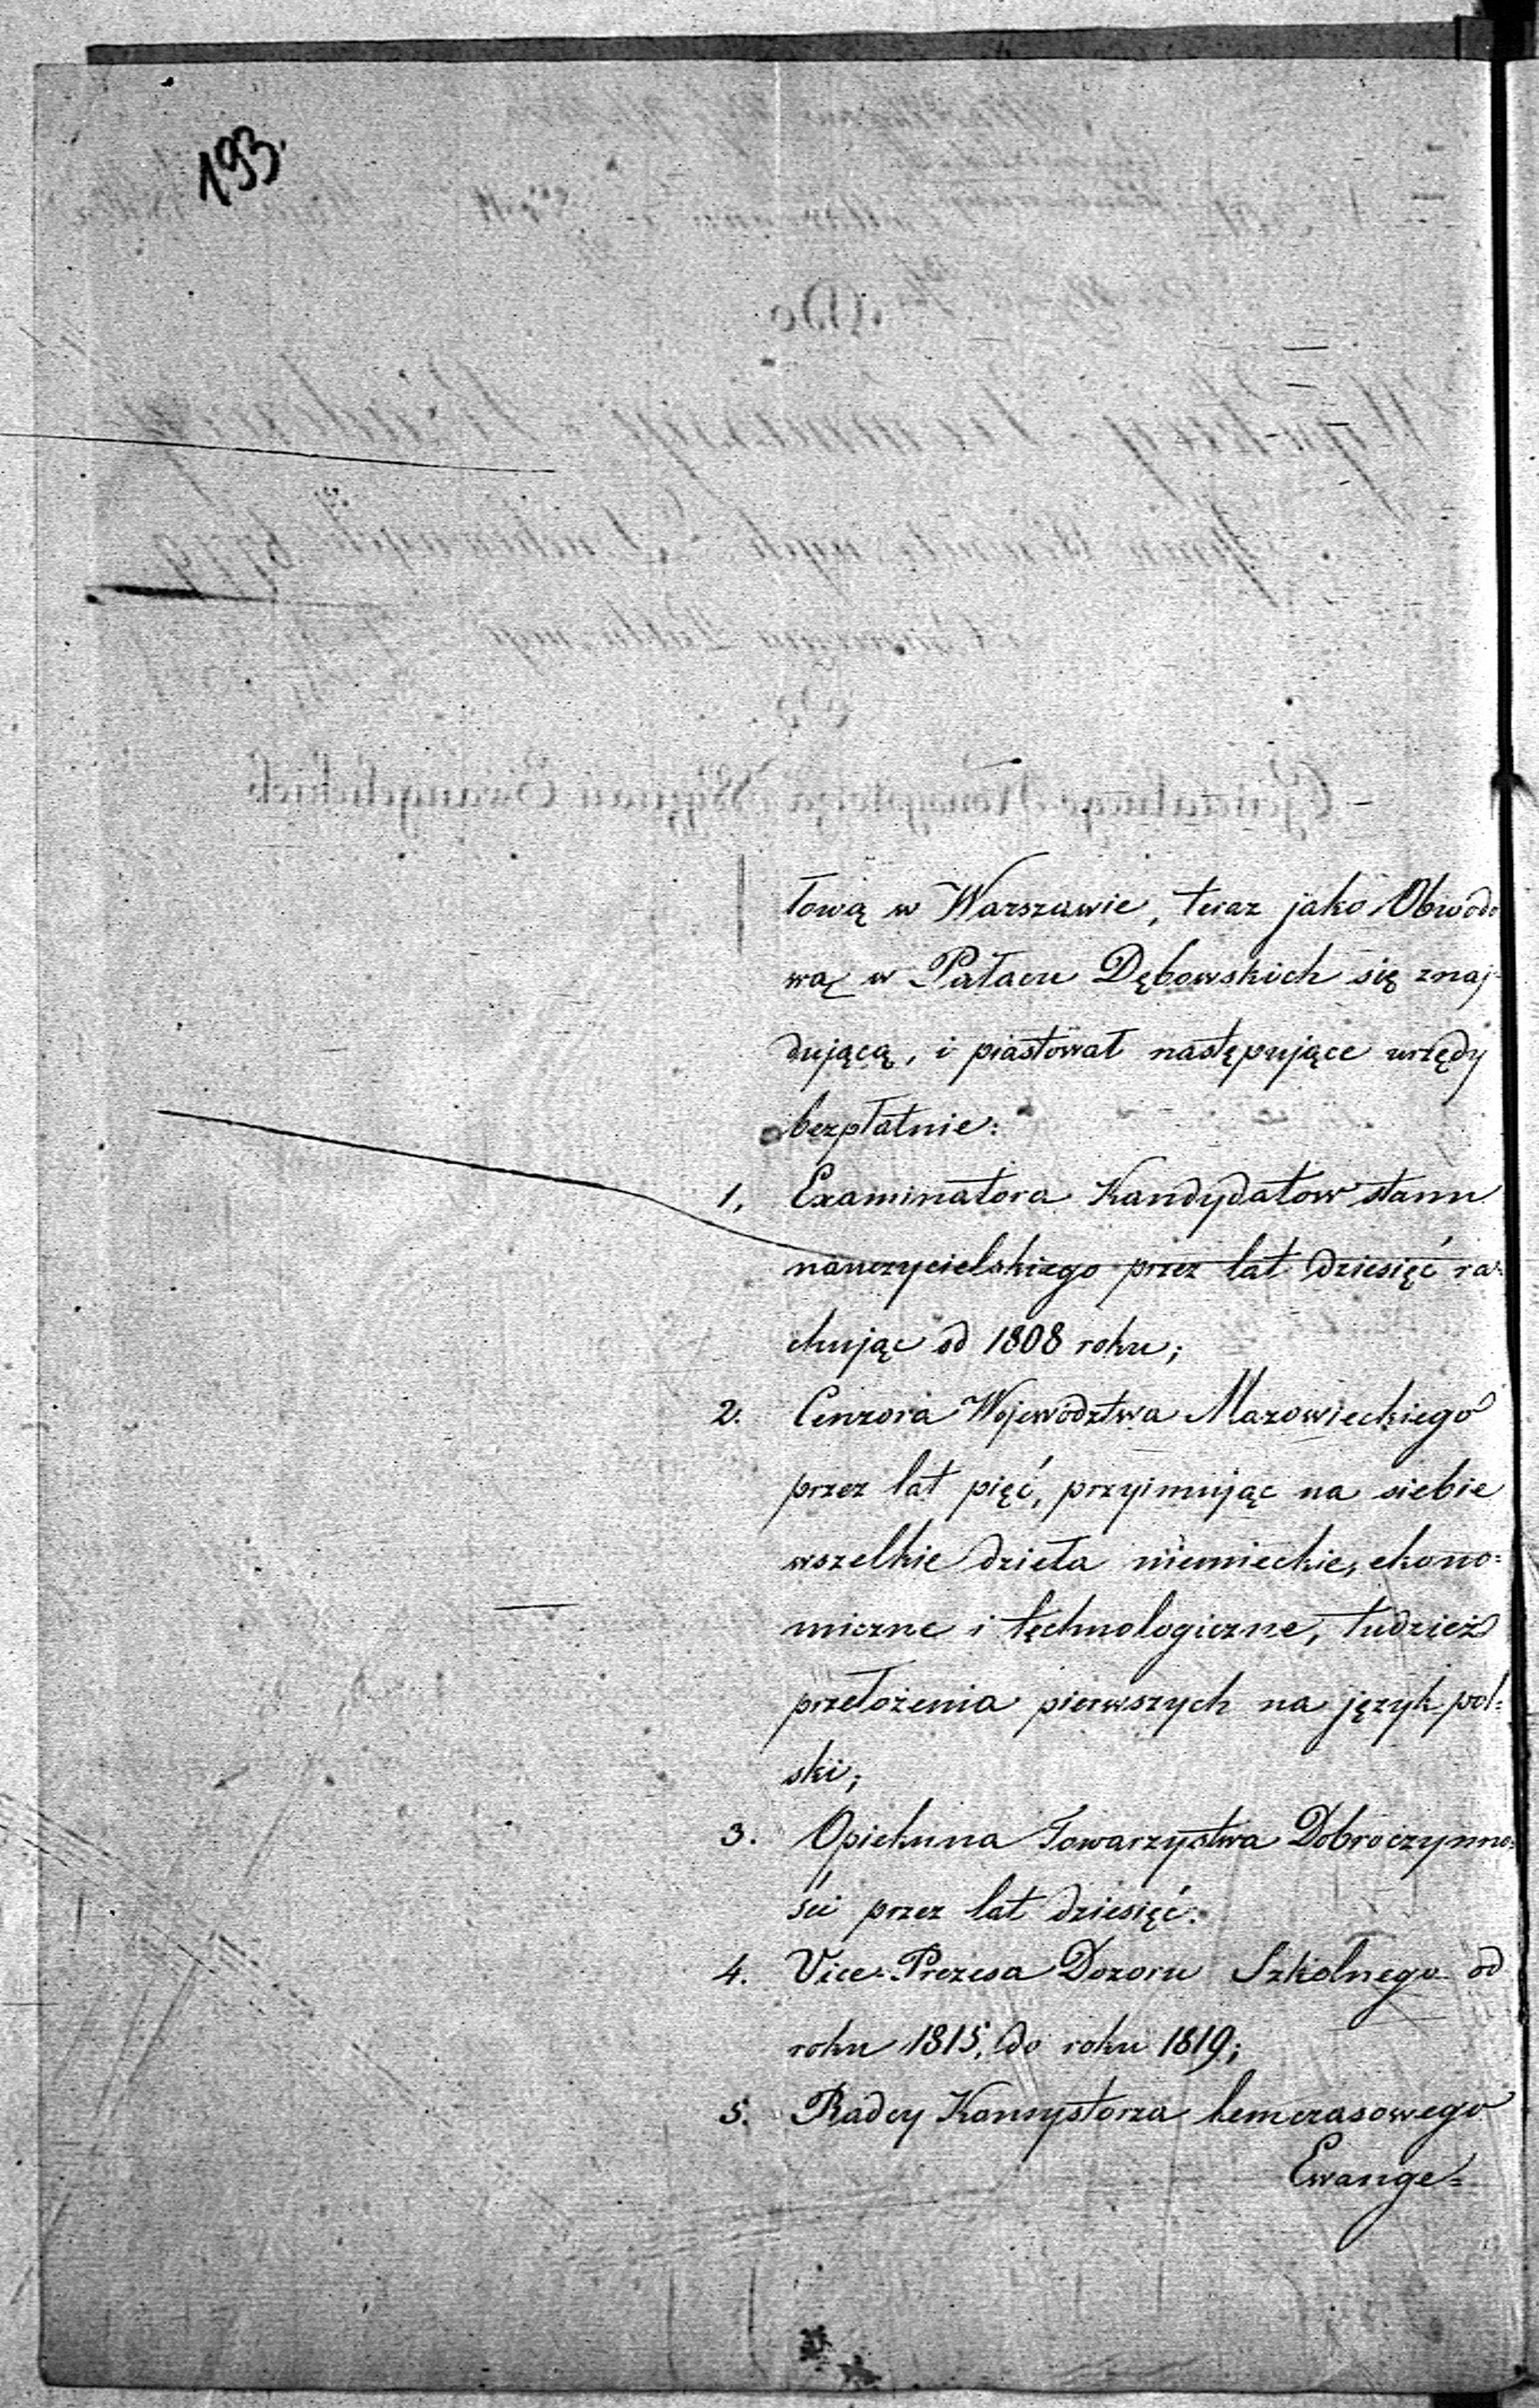 193.
łową w Warszawie, teraz jako Obwodo
wą w Pałacu Dębowskich się znaj-
dującą, i piastował następujące urzędy
bezpłatnie:
1, Examinatora Kandydatow stanu
nauczycielskiego przez lat dziesięć ra-
chując od 1808 roku;
2. Cenzora Województwa Mazowieckiego
przez lat pięć, przyimując na siebie
wszelkie dzieła niemieckie, ekono=
miczne i technologiczne, tudzież
przełożenia pierwszych na język pol=
ski;
3. Opiekuna Towarzystwa Dobroczynno=
ści przez lat dziesięć.
4. Vice-Prezesa Dozoru Szkolnego od
roku 1815, do roku 1819;
5. Radcy Konsystorza temczasowego
Ewange=